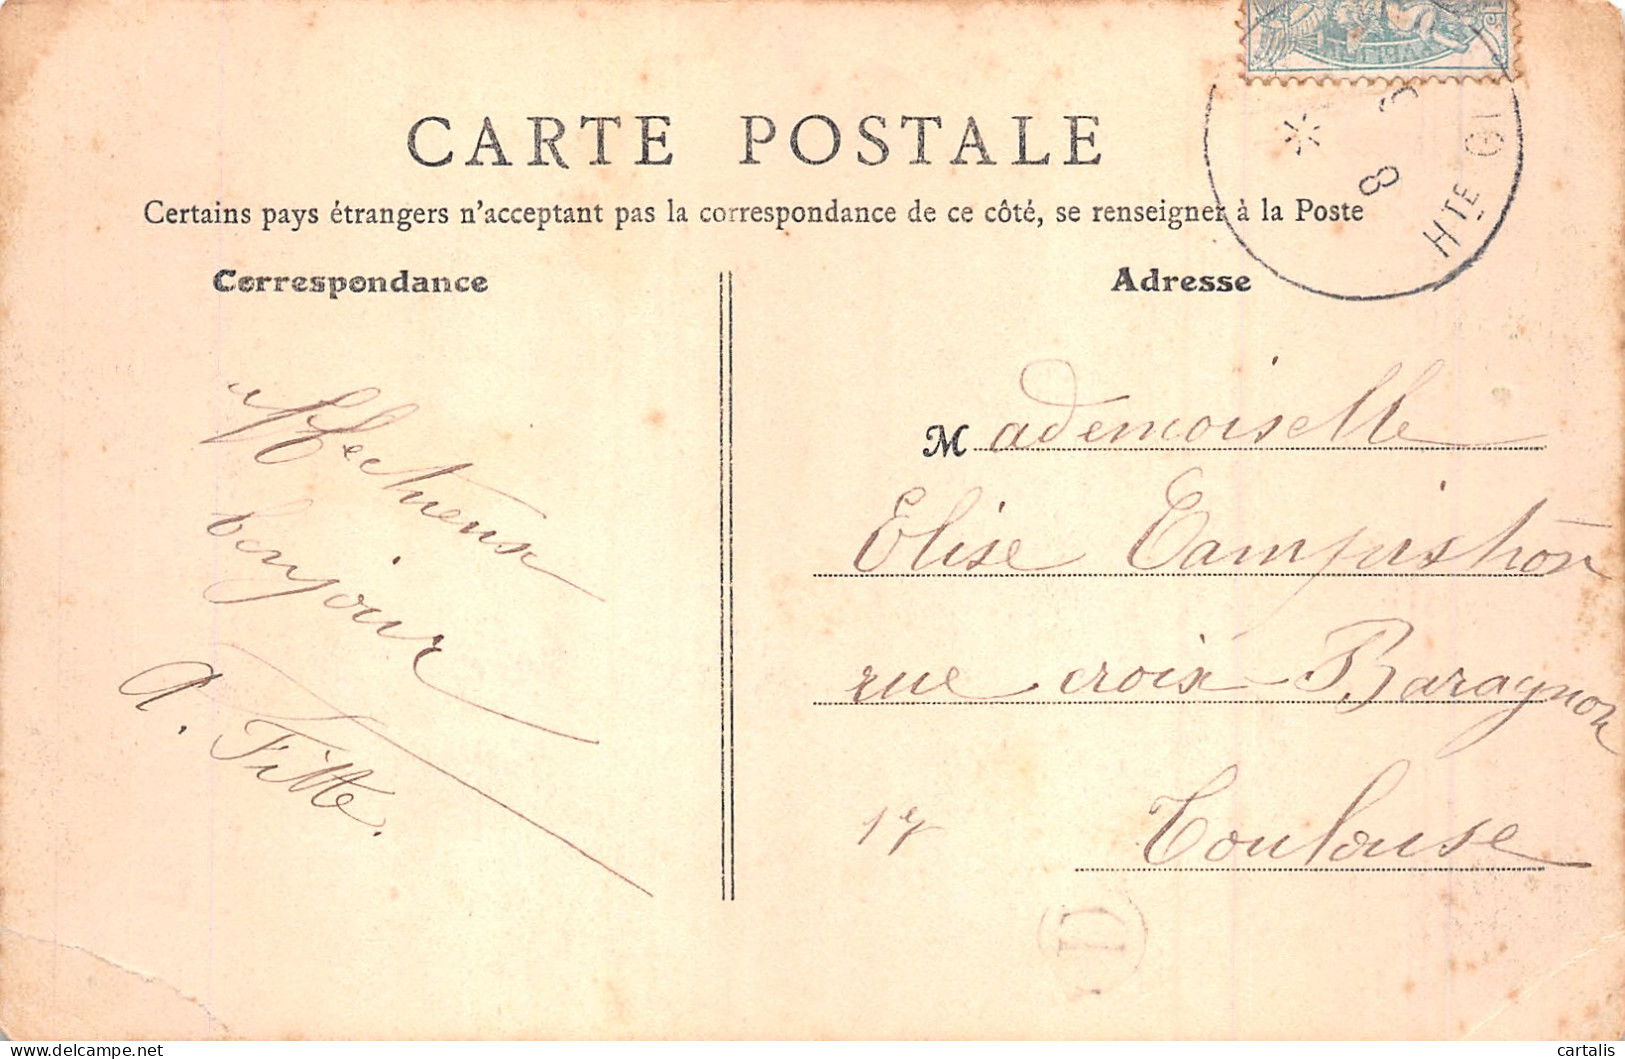 CARTE POSTALE
Certains pays étrangers n'acceptant pas la correspondance de ce côté, se renseigner à la Poste
Correspondance
Adresse
8
HTE G
Affectueux
bonjour
A. Fitte.
Mademoiselle
Elise
rue croix-Baragnon
17
Toulouse
D
delcampe.net
cartalis